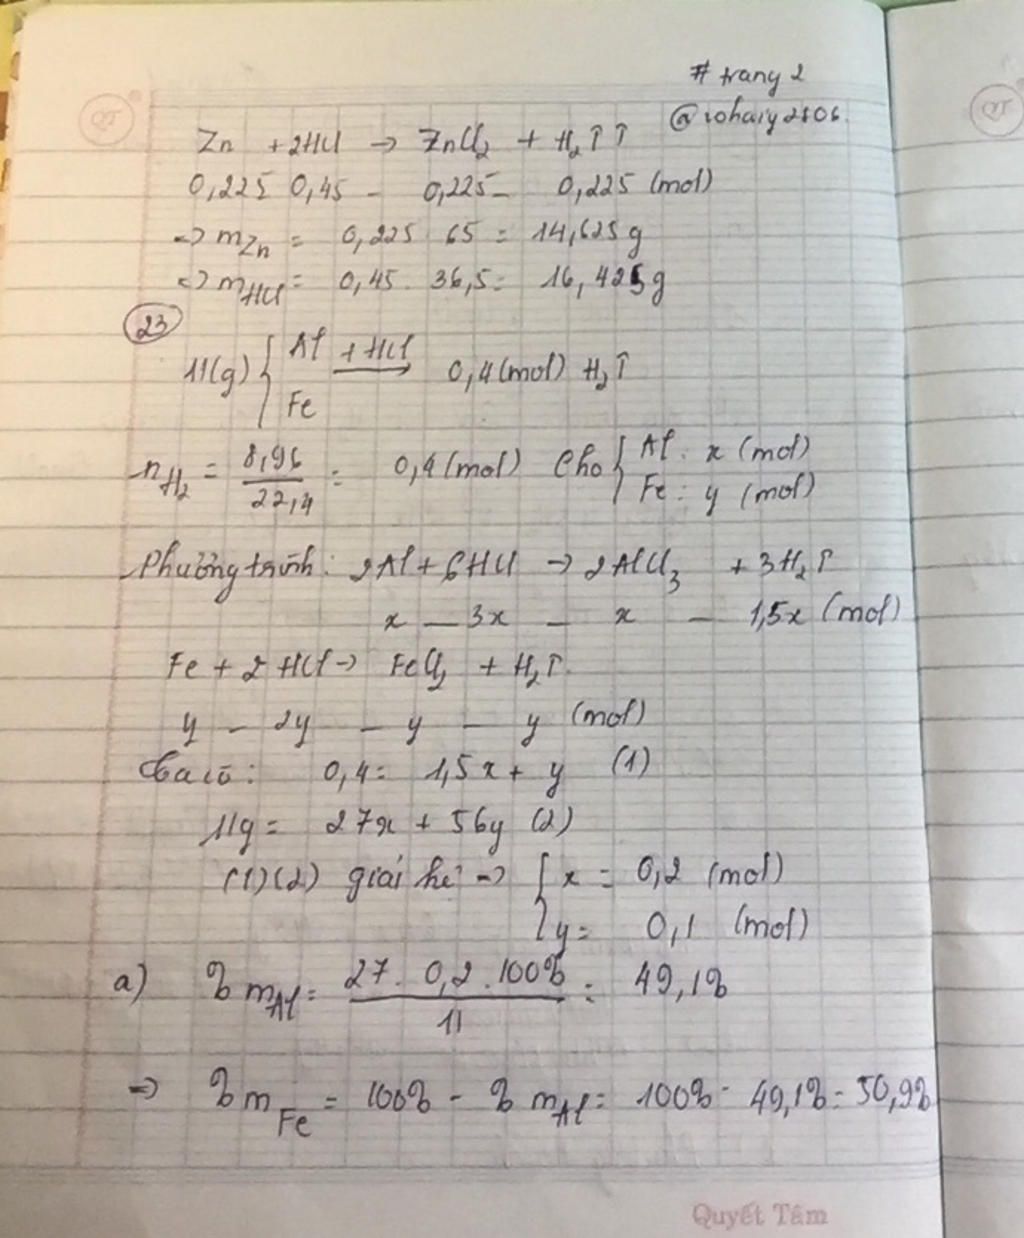 # trang 2
@rohaiy2806.
Zn + 2HCl → ZnCl₂ + H₂↑↑
0,225 0,45 - 0,225 - 0,225 (mol)
=> mZn = 0,225 . 65 = 14,625g
=> mHCl = 0,45 . 36,5 = 16,425g
23
11(g) { Al + HCl → 0,4 (mol) H₂↑
Fe
nH₂ = 8,96 / 22,4 = 0,4 (mol) Cho { Al : x (mol)
Fe : y (mol)
Phương trình: 2Al + 6HCl → 2AlCl₃ + 3H₂↑
x — 3x — x — 1,5x (mol)
Fe + 2HCl → FeCl₂ + H₂↑.
y — 2y — y — y (mol)
Ta có: 0,4 = 1,5x + y (1)
11g = 27x + 56y (2)
(1)(2) giải hệ => { x = 0,2 (mol)
y = 0,1 (mol)
a) % mAl = 27 . 0,2 . 100% / 11 = 49,1%
=> % mFe = 100% - % mAl = 100% - 49,1% = 50,9%
Quyết Tâm